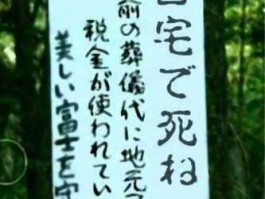 自宅で死ね
前の葬儀代に地元
税金が使われてい
美しい富士を守